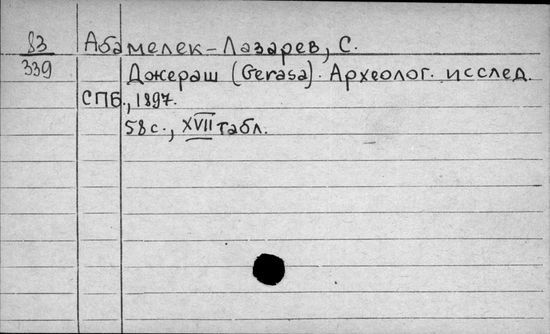 83 Абамелек-Лазарев, С.
339 Джераш (Gerasa). Археолог. исслед.
СПБ., 1897.
58 с., XVII табл.